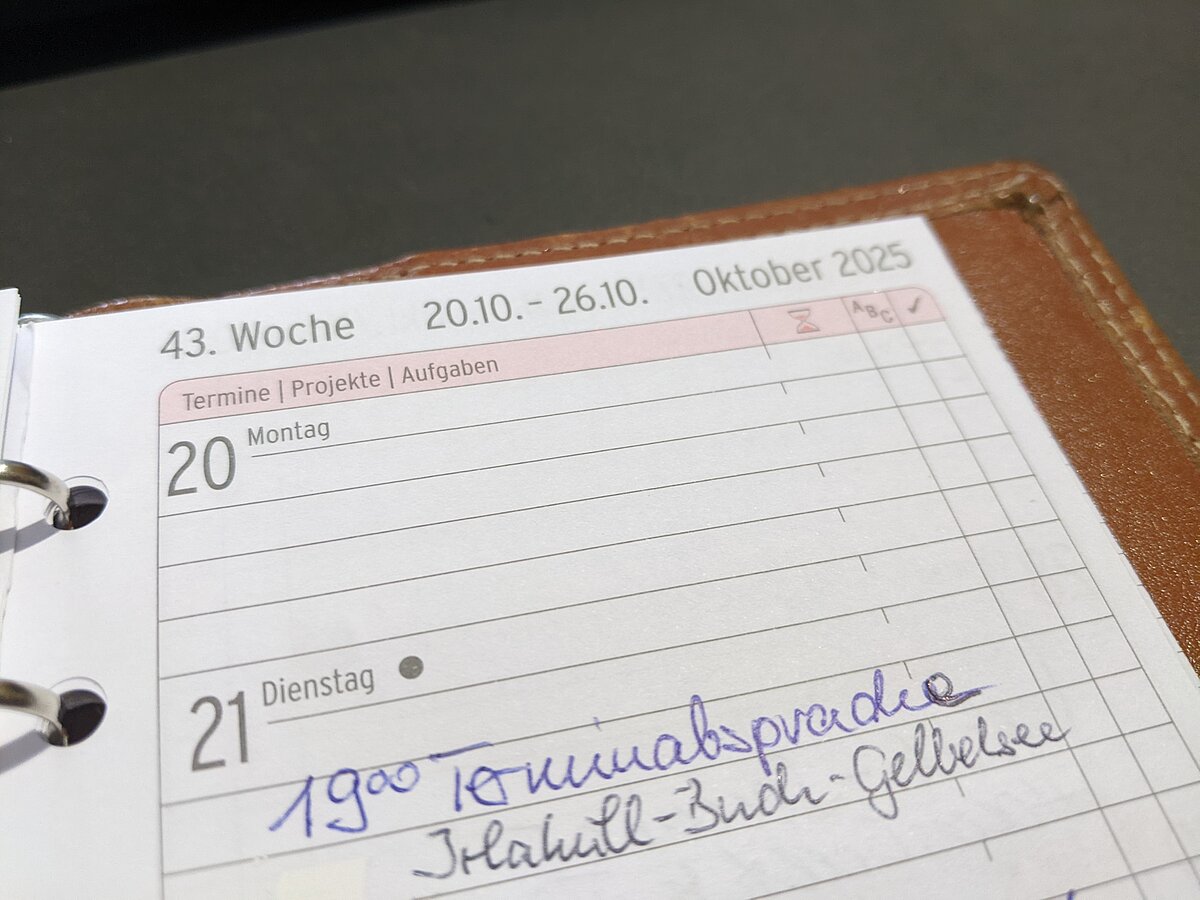 43. Woche 20.10. - 26.10. Oktober 2025
Termine | Projekte | Aufgaben ABC ✓
20 Montag
21 Dienstag
19⁰⁰ Terminabsprache
Irlahüll-Buch-Gelbelsee